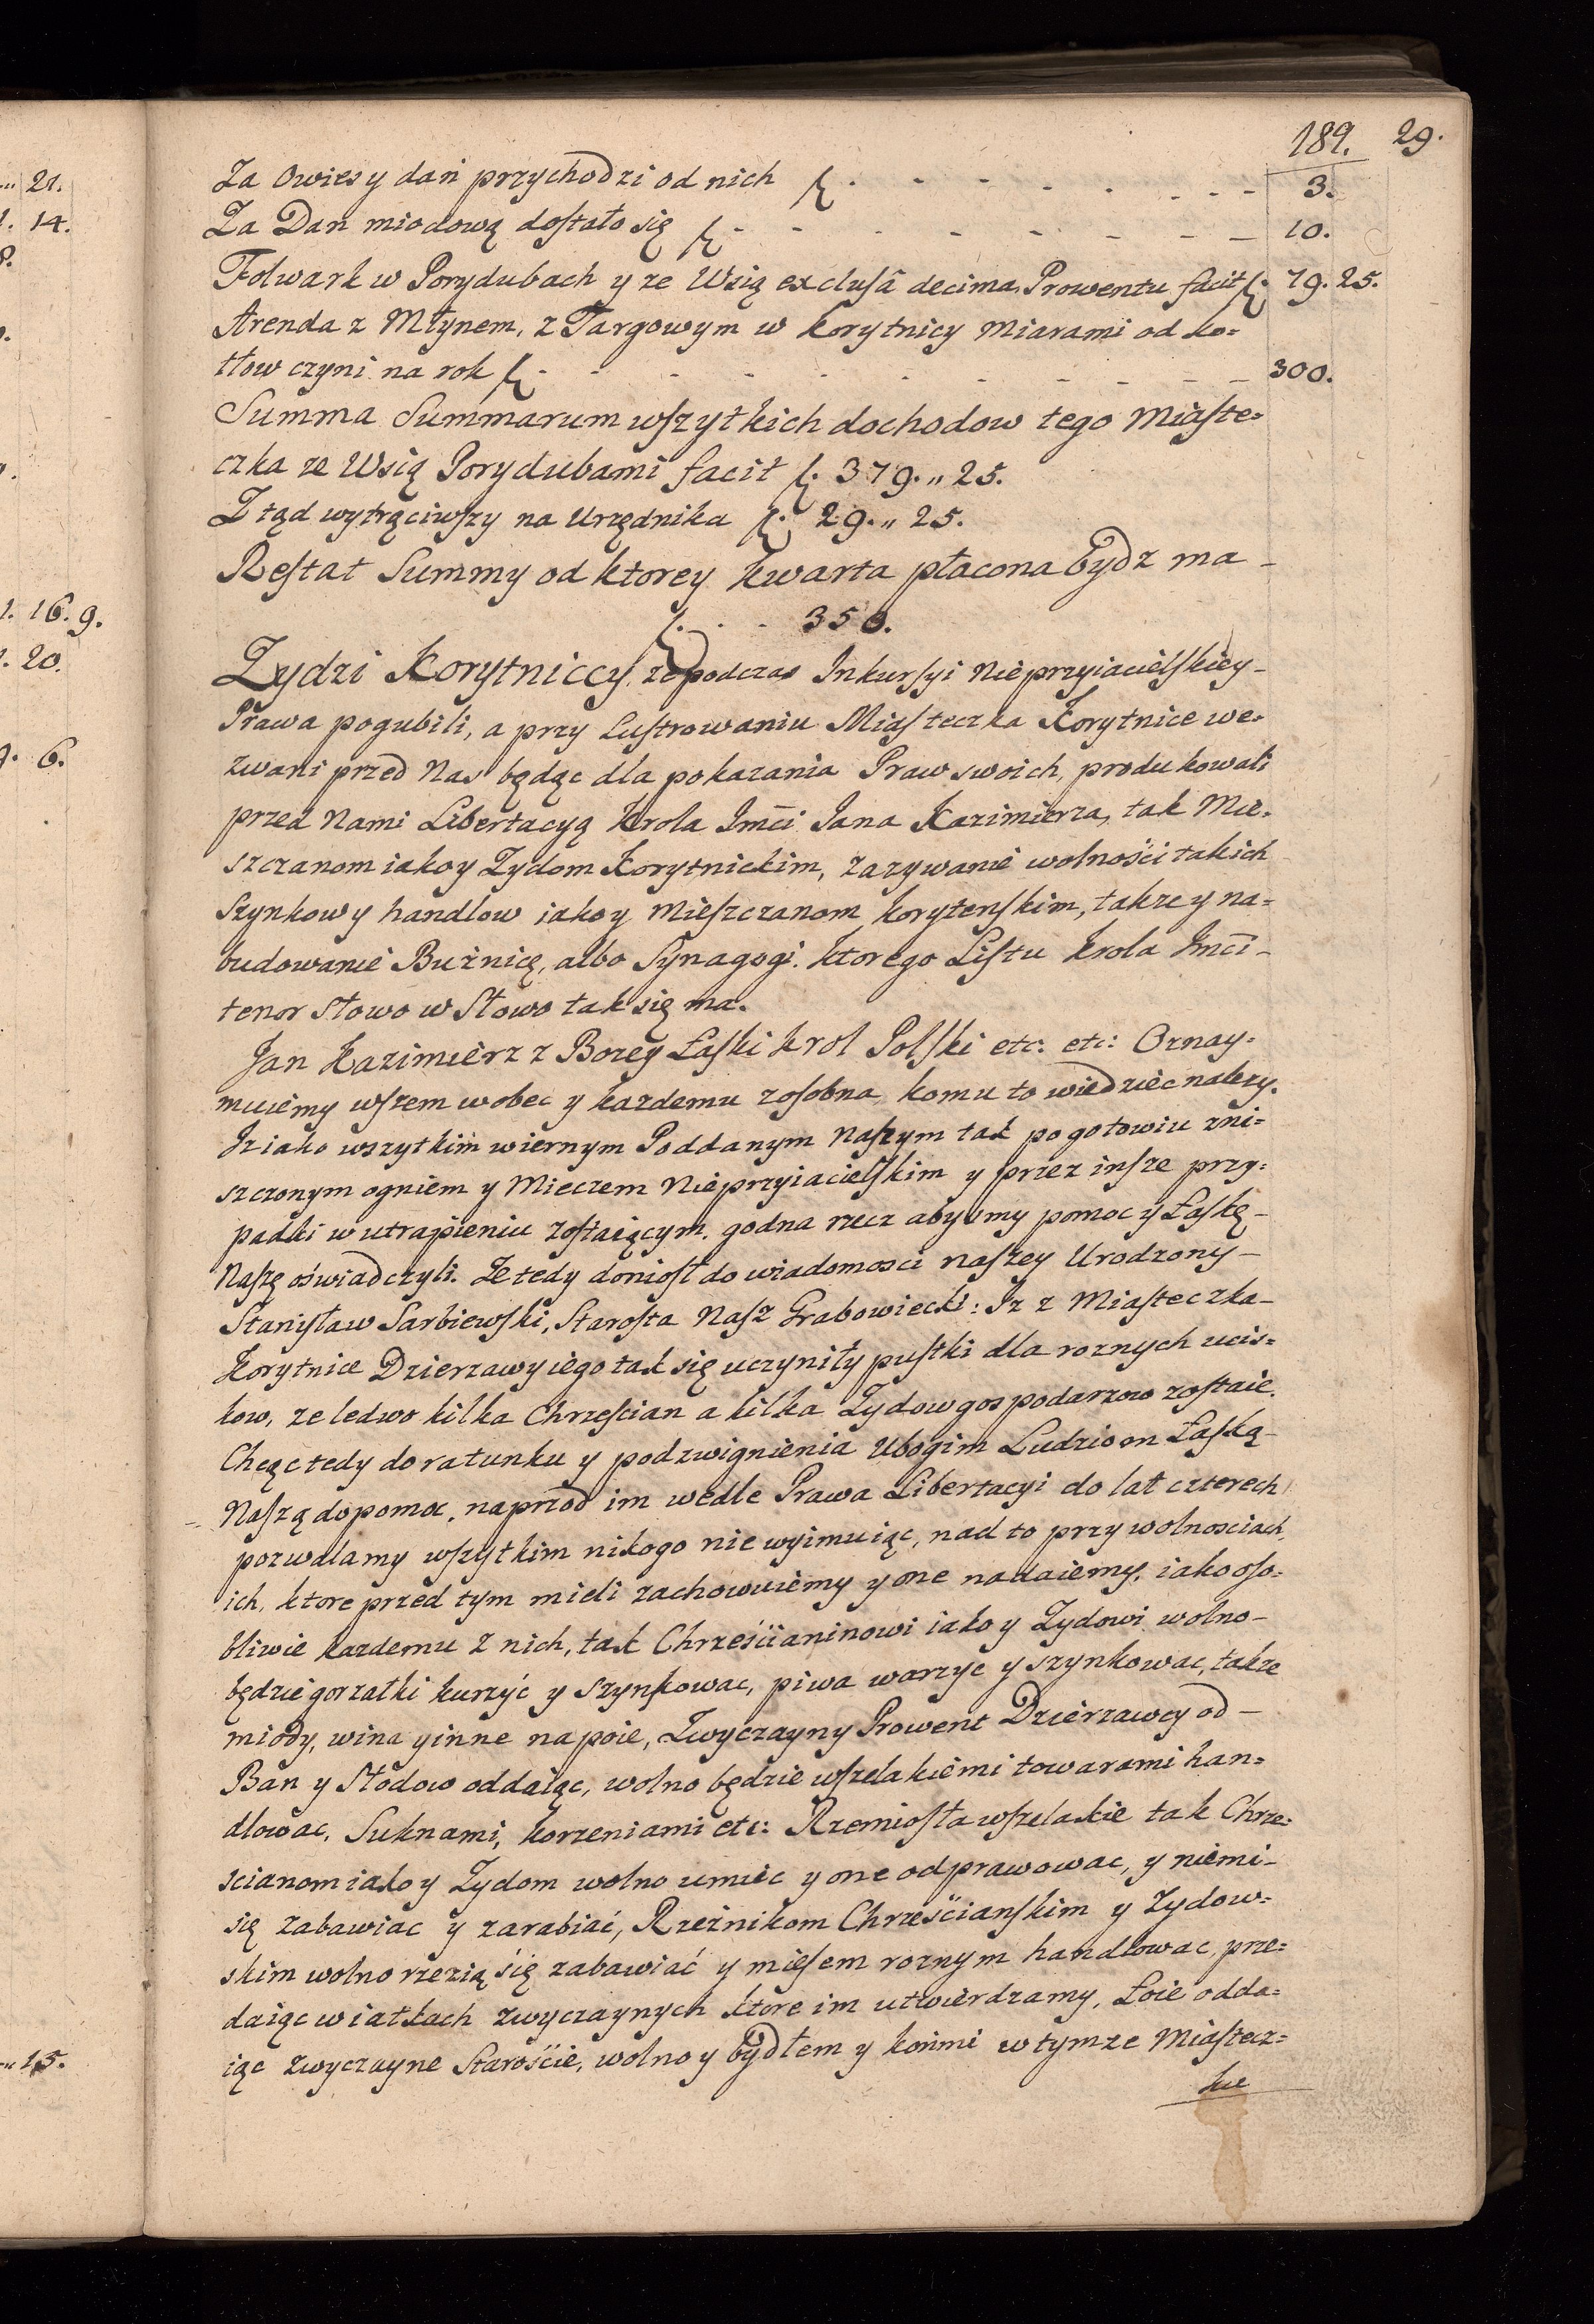 189. 29.
Za Owies y dań przychodzi od nich f. - - - - - - - - 3.
Za Dan miodową dostało się f. - - - - - - - - 10.
Folwark w Porydubach y ze Wsią exclusâ decima Prowentu facit f. 79. 25.
Arenda z Młynem, z Targowym w Korytnicy Miarami od ko=
tłow czyni na rok f. - - - - - - - - - - 300.
Summa Summarum wszytkich dochodow tego Miaste=
czka ze Wsią Porydubami facit f. 379. „ 25.
Z tąd wytrąciwszy na Urzędnika f. 29. „ 25.
Restat Summy od ktorey kwarta płacona bydz ma -
f. - - 350.
Zydzi Korytniccy, ze podczas Inkursyi Nieprzyiacielskiey -
Prawa pogubili, a przy Lustrowaniu Miasteczka Korytnice we=
zwani przed Nas będąc dla pokazania Praw swoich, produkowali
przed Nami Libertacyą Krola Jmci Jana Kazimierza, tak Mie=
szczanom iako y Zydom Korytnickim, zazywanie wolności takich
Szynkow y handlow iako y Mieszczanom korytenskim, takze y na=
budowanie Bużnicę, albo Synagogi. ktorego Listu Krola Jmci -
tenor Słowo w Słowo tak się ma.
Jan Kazimierz z Bozey Łaski Krol Polski etc: etc: Oznay=
muiemy wszem wobec y kazdemu zosobna, komu to wiedziec nalezy.
Iz iako wszytkim wiernym Poddanym Naszym tak pogotowiu zni=
szczonym ogniem y Mieczem Nieprzyiacielskim y przez insze przy=
padki w utrapieniu zostaiącym, godna rzecz abysmy pomoc y Łaskę -
Naszę oświadczyli. Ze tedy doniosł do wiadomosci naszey Urodzony -
Stanisław Sarbiewski, Starosta Nasz Grabowiecki: Iz z Miasteczka -
Korytnice Dzierzawy iego tak się uczyniły pustki dla roznych ucis=
kow, ze ledwo kilka Chrzescian a kilka Zydow gospodarzow zostaie.
Chcąc tedy do ratunku y podzwignienia Ubogim Ludziom Łaską -
Naszą dopomoc, naprzod im wedle Prawa Libertacyi do lat czterech
pozwalamy wszytkim nikogo nie wyimuiąc, nad to przy wolnosciach
ich, ktore przed tym mieli zachowuiemy y one nadaiemy, iako oso=
bliwie kazdemu z nich, tak Chrześcianinowi iako y Zydowi wolno -
będzie gorzałki kurzyć y Szynkowac, piwa warzyc y szynkowac, takze
miody, wina y inne napoie, Zwyczayny Prowent Dzierzawcy od -
Ban y Słodow oddaiąc, wolno będzie wszelakiemi towarami han=
dlowac, Suknami, korzeniami etc: Rzemiosła wszelakie tak Chrze=
scianom iako y Zydom wolno umiec y one odprawowac, y niemi -
się zabawiac y zarabiać, Rzeżnikom Chrześcianskim y Zydow=
skim wolno rzezią się zabawiać y mięsem roznym handlowac, prze=
daiąc w iatkach zwyczaynych ktore im utwierdzamy, Łoie odda=
iąc zwyczayne Starośćie, wolno y bydłem y końmi w tymze Miastecz=
ku
21.
14.
8.
16. 9.
20.
6.
15.